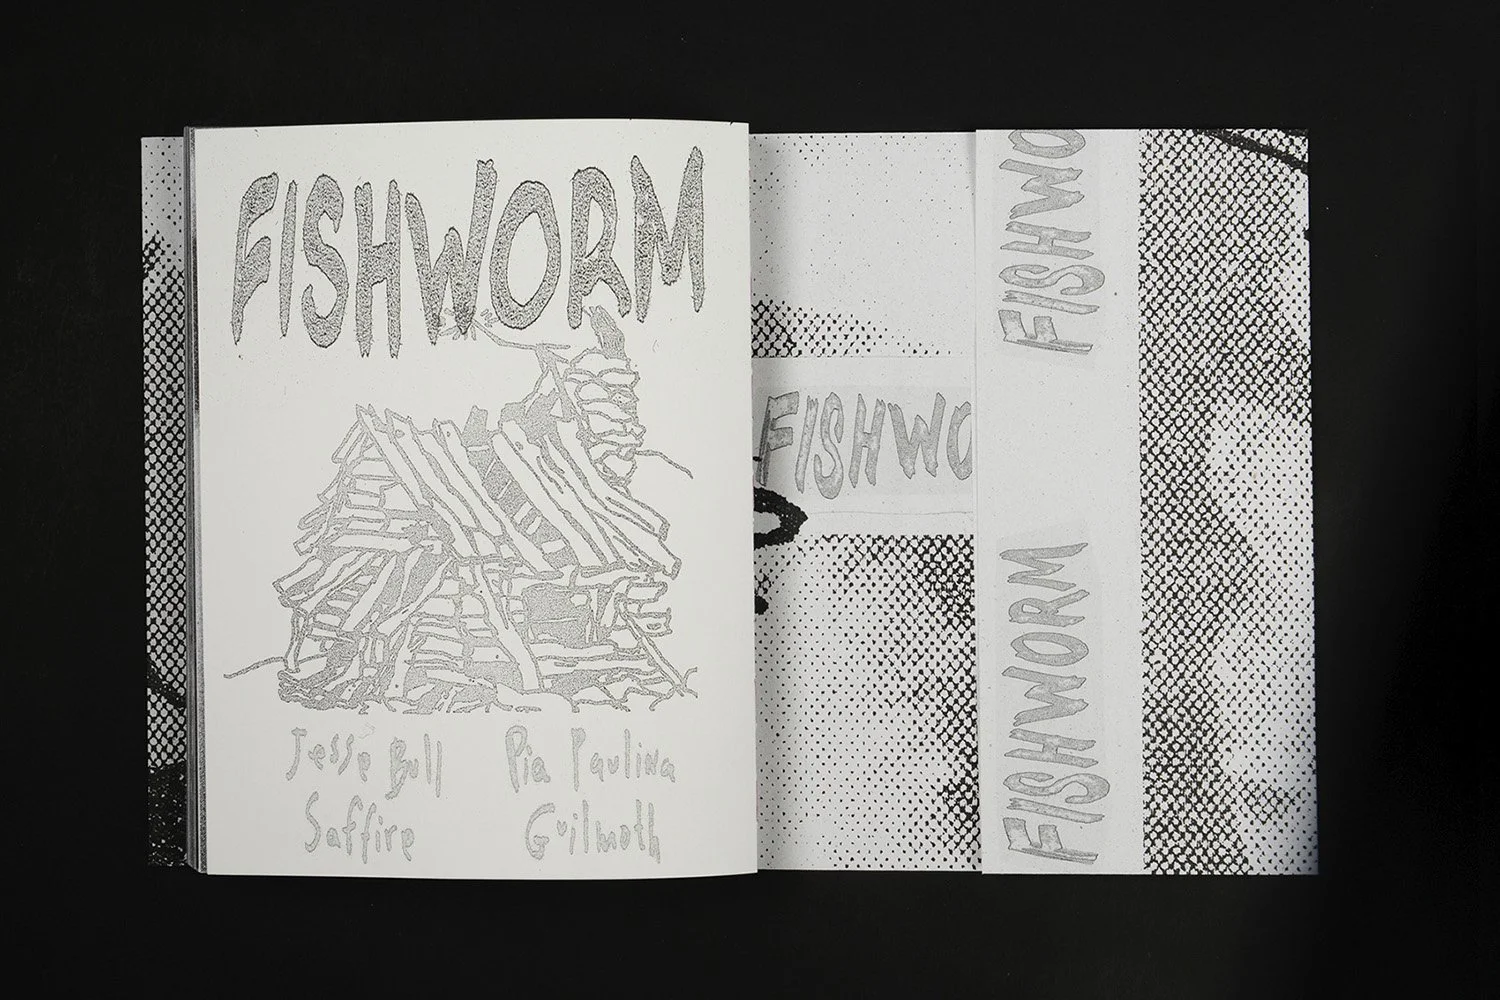 FISHWORM
Jesse Bull
Saffire
Pia Paulina
Guilmoth
FISHWO
FISHWO
FISHWORM